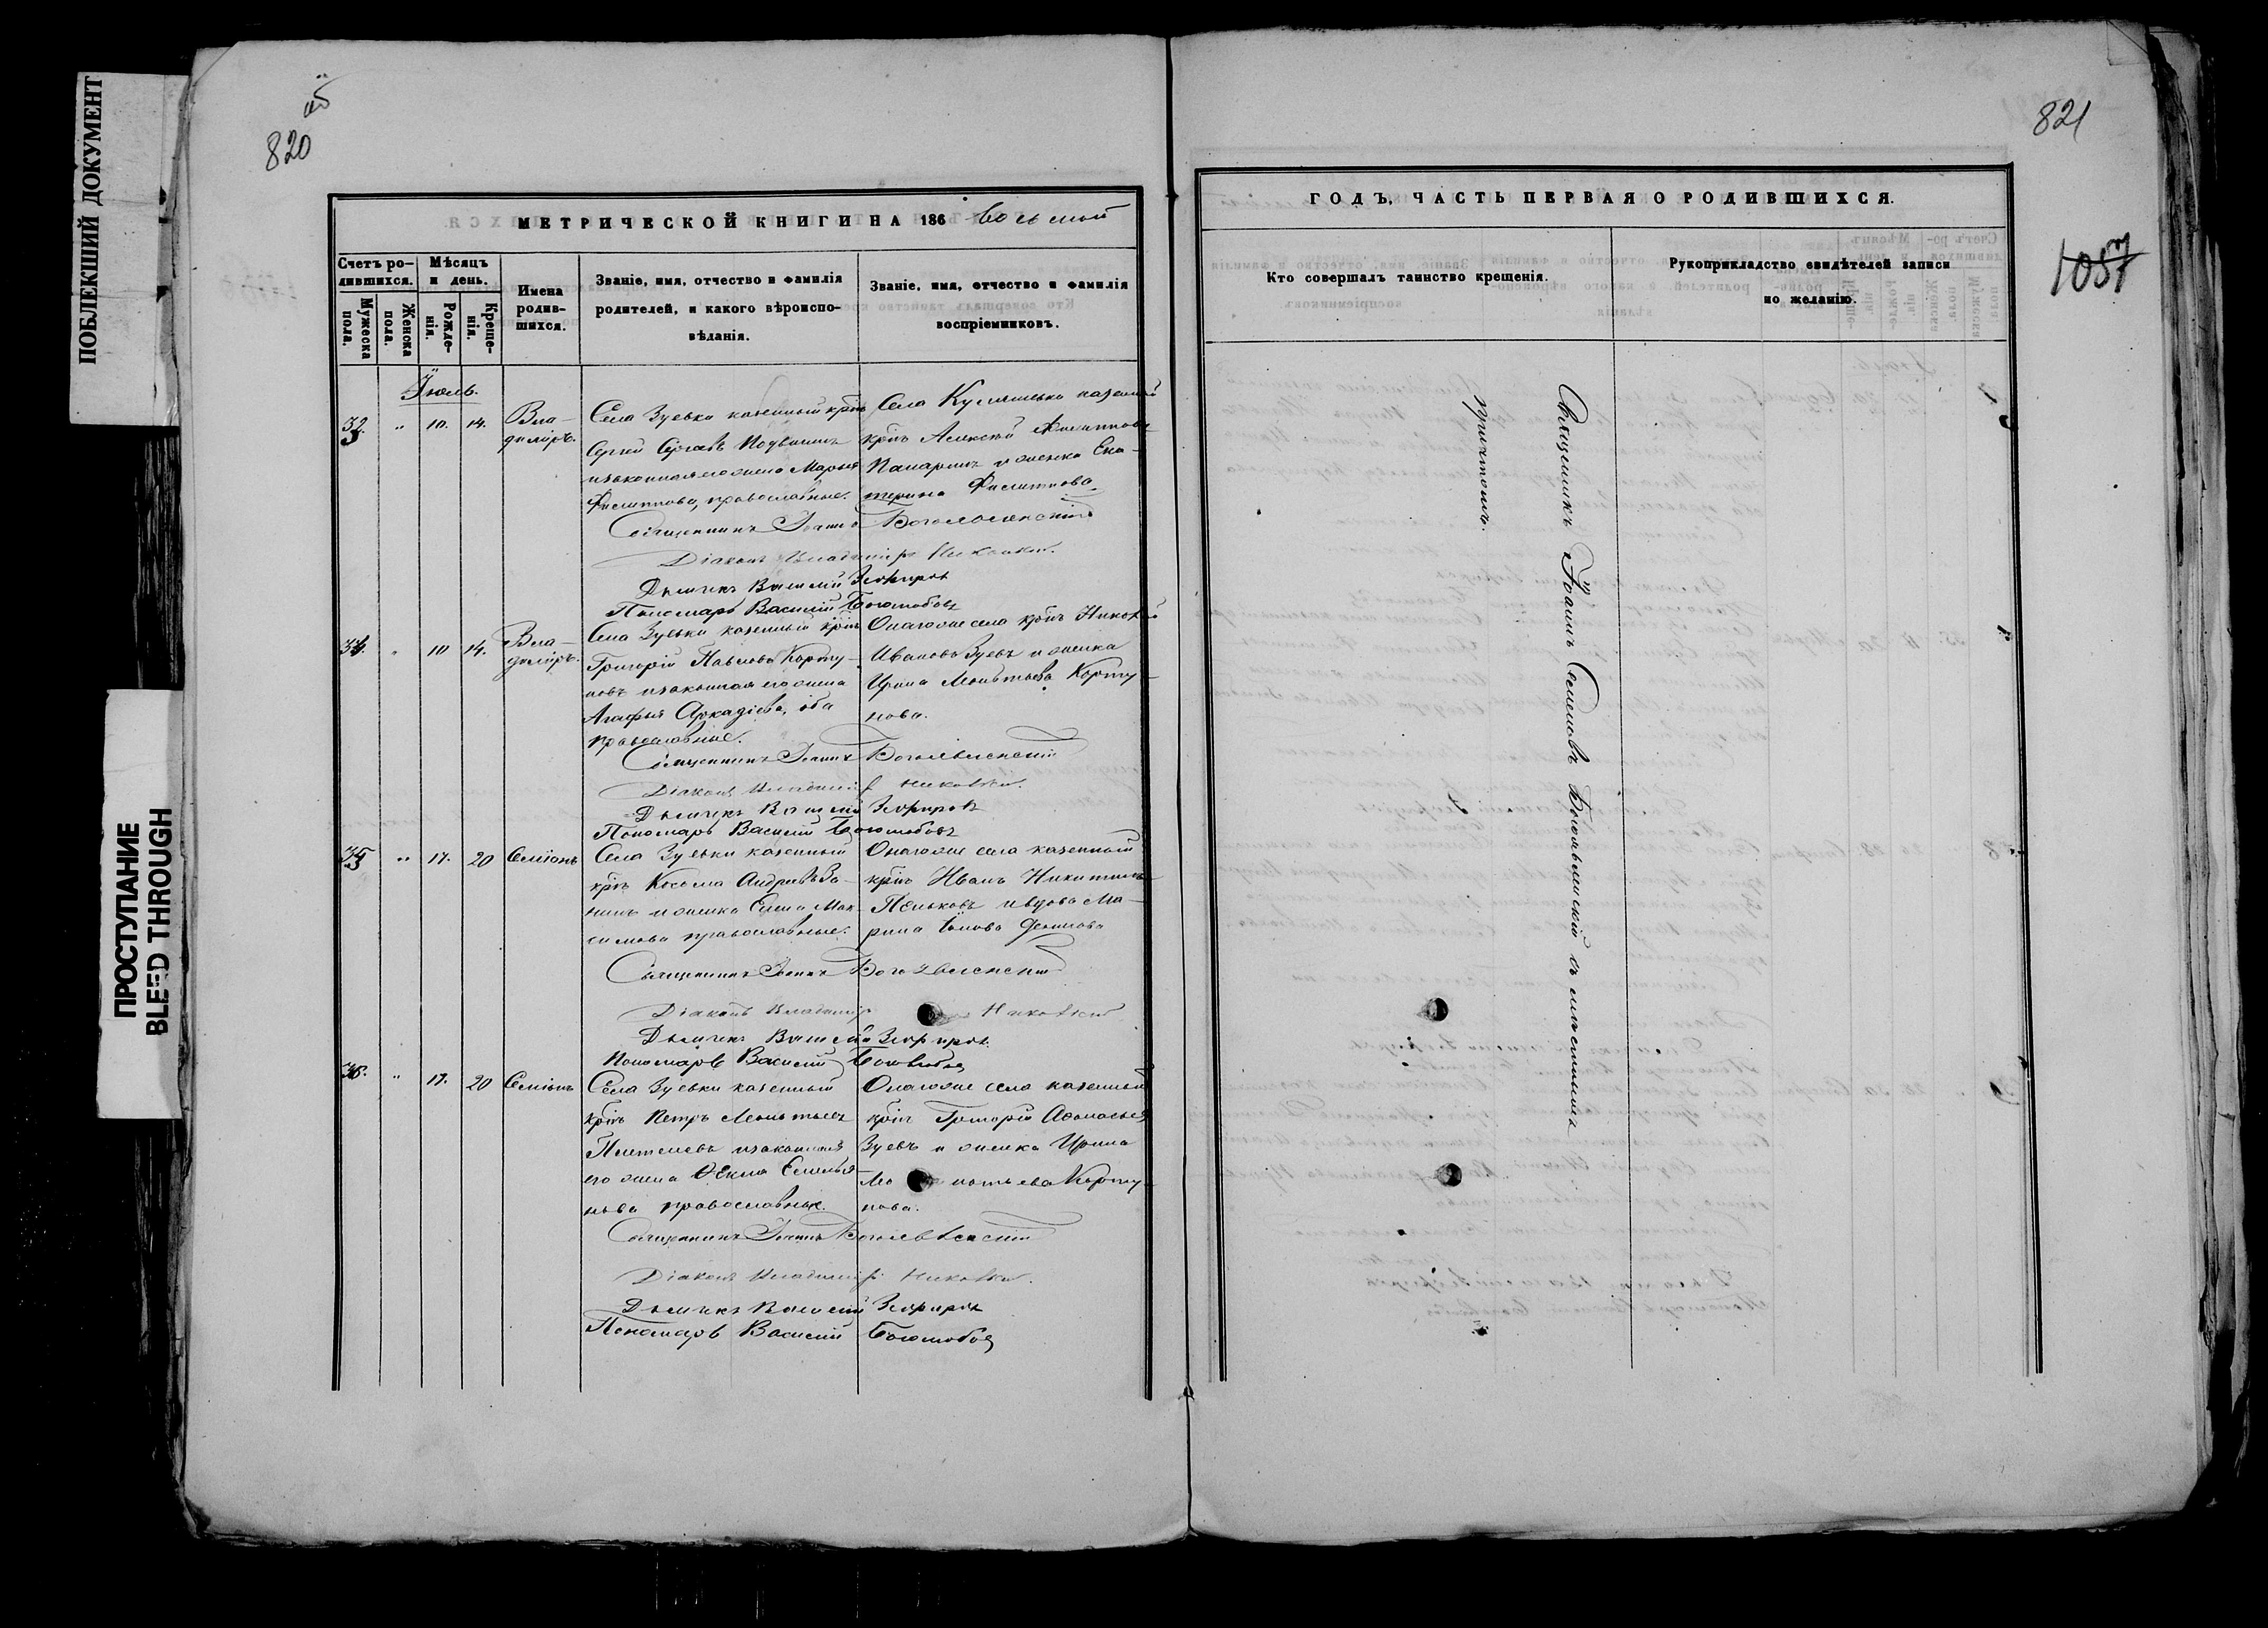 ПОБЛЕКШИЙ ДОКУМЕНТ
ПРОСТУПАНИЕ
BLEED THROUGH
820
МЕТРИЧЕСКОЙ КНИГИ НА 186 восьмой
Счетъ родившихся.
Мѣсяцъ и день.
Мужеска пола.
Женска пола.
Рожденія.
Крещенія.
Имена родившихся.
Званіе, имя, отчество и фамилія
родителей, и какого вѣроиспо-
вѣданія.
Званіе, имя, отчество и фамилія
воспріемниковъ.
Іюль.
10. 14. Вла-
диміръ.
Села Зуевки казенный крѣнъ
Сергій Сергѣевъ
изаконная его жена Марья
Филиппова, православные.
Села казенный
крѣнъ Алексѣй Филипповъ
и женка Ека-
терина Филиппова.
Священникъ Іоаннъ Богоявленскій
Діаконъ Владиміръ
Дьячекъ Василій Зефировъ
Пономарь Василій Боголюбовъ
34. 10 14. Вла-
диміръ.
Села Зуевки казенный крѣнъ
Григорій Павловъ Корту-
новъ изаконная его жена
Агафья Аркадіева, оба
православные.
Онагоже села крѣнъ Николай
Ивановъ Зуевъ и женка
Ирина Леонтьева Корту-
нова.
Священникъ Іоаннъ Богоявленскій
Діаконъ Владиміръ
Дьячекъ Василій Зефировъ
Пономарь Василій Боголюбовъ
35 17. 20 Семіонъ
Села Зуевки казенный
крѣнъ Косьма Андреевъ За-
нинъ и женка Елена Мак-
симова православные.
Онагоже села казенный
крѣнъ Иванъ Никитинъ
Пеньковъ и вдова Ма-
рина Іонова
Священникъ Іоаннъ Богоявленскій
Діаконъ Владиміръ
Дьячекъ Василій Зефировъ
Пономарь Василій Боголюбовъ
36. 17. 20 Семіонъ
Села Зуевки казенный
крѣнъ Петръ Леонтьевъ
изаконная
его жена Ѳекла Емелья-
нова православные.
Онагоже села казенный
крѣнъ Григорій Аѳонасьевъ
Зуевъ и женка Ирина
Леонтьева Корту-
нова.
Священникъ Іоаннъ Богоявленскій
Діаконъ Владиміръ
Дьячекъ Василій Зефировъ
Пономарь Василій Боголюбовъ
821
1057
ГОДЪ, ЧАСТЬ ПЕРВАЯ О РОДИВШИХСЯ.
Кто совершалъ таинство крещенія.
Рукоприкладство свидѣтелей записи
по желанію.
Священникъ Іоаннъ Семеновъ Богоявленскій съ
причтомъ.